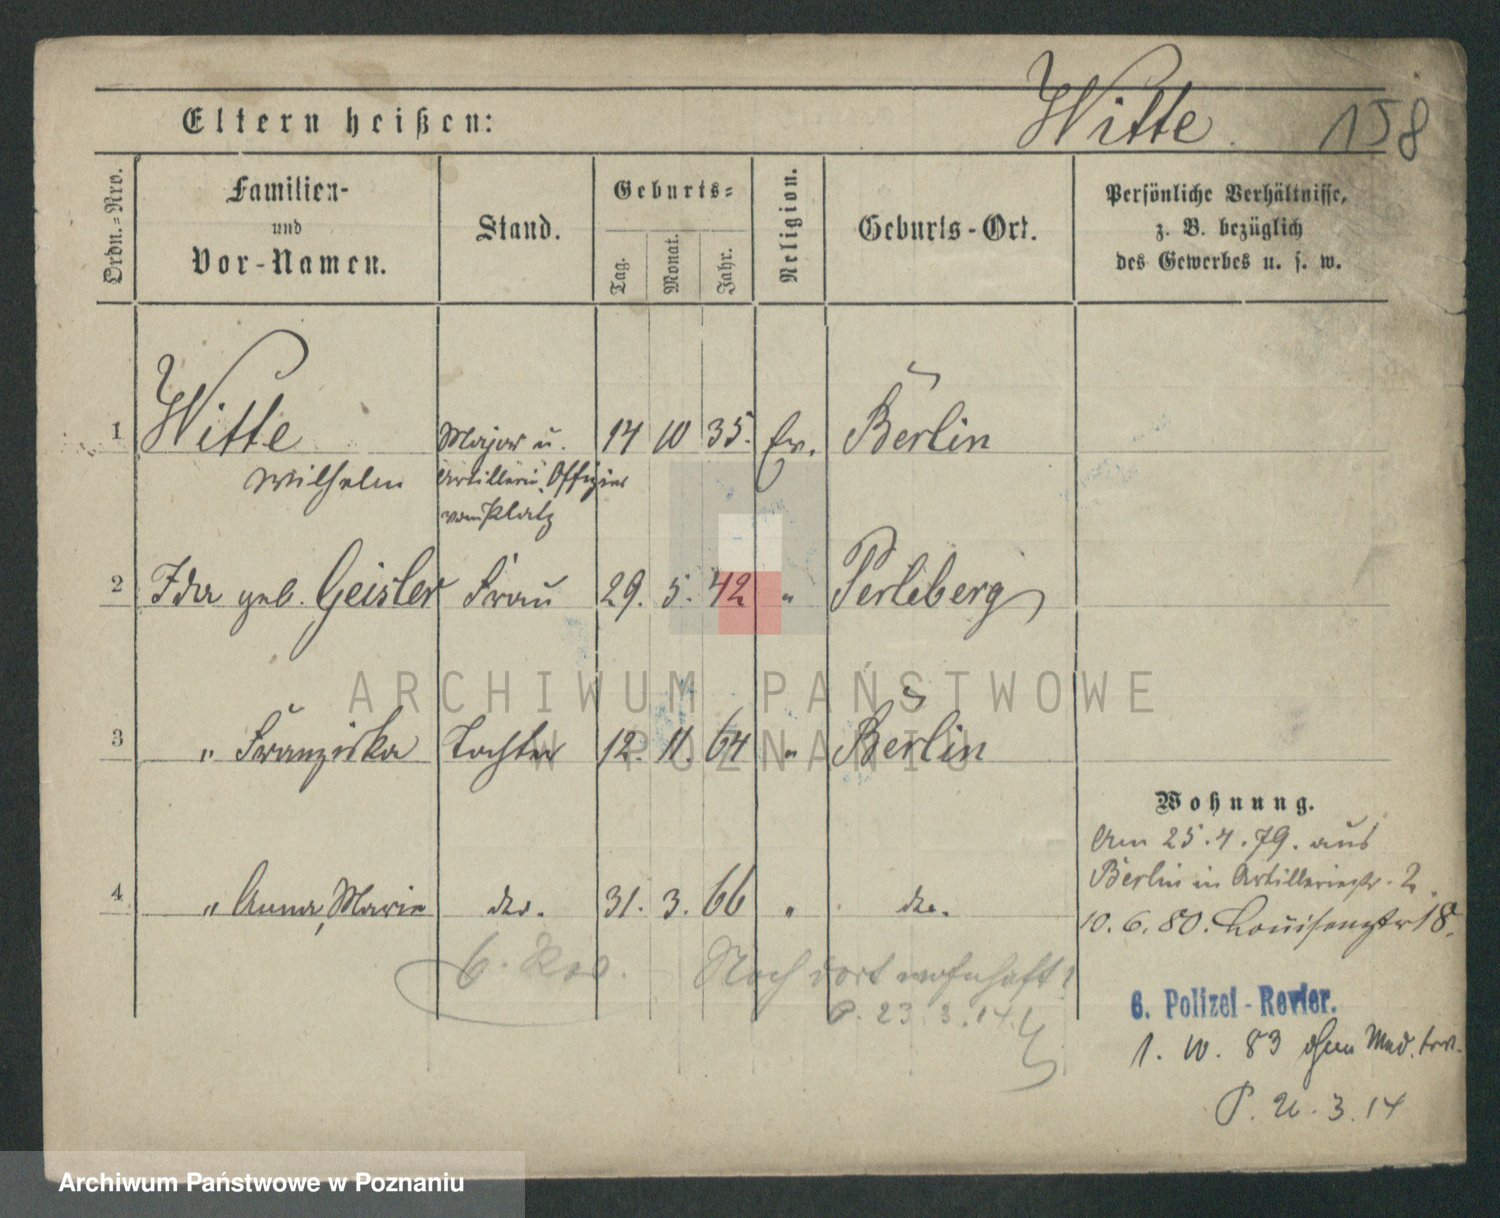 Witte. 158
Eltern heißen:
Ordn.=Nro.
Familien-
und
Vor-Namen.
Stand.
Geburts=
Tag.
Monat.
Jahr.
Religion.
Geburts-Ort.
Persönliche Verhältnisse,
z. B. bezüglich
des Gewerbes u. s. w.
1 Witte Major u. 14 10 35. Ev. Berlin
Wilhelm Artillerie Offizier
vom Platz
2 Ida geb. Geisler Frau 29. 5. 42 " Perleberg
3 " Franziska Tochter 12. 11. 64 " Berlin
4 " Anna, Marie do. 31. 3. 66 " do.
Wohnung.
Am 25.4.79. aus
Berlin in Artilleriestr. 2.
10. 6. 80. Louisenstr 18.
6. Rev. Noch dort wohnhaft!
P. 23.3.14
6. Polizei-Revier.
1. 10. 83
P. 3.14
ARCHIWUM PAŃSTWOWE
W POZNANIU
Archiwum Państwowe w Poznaniu